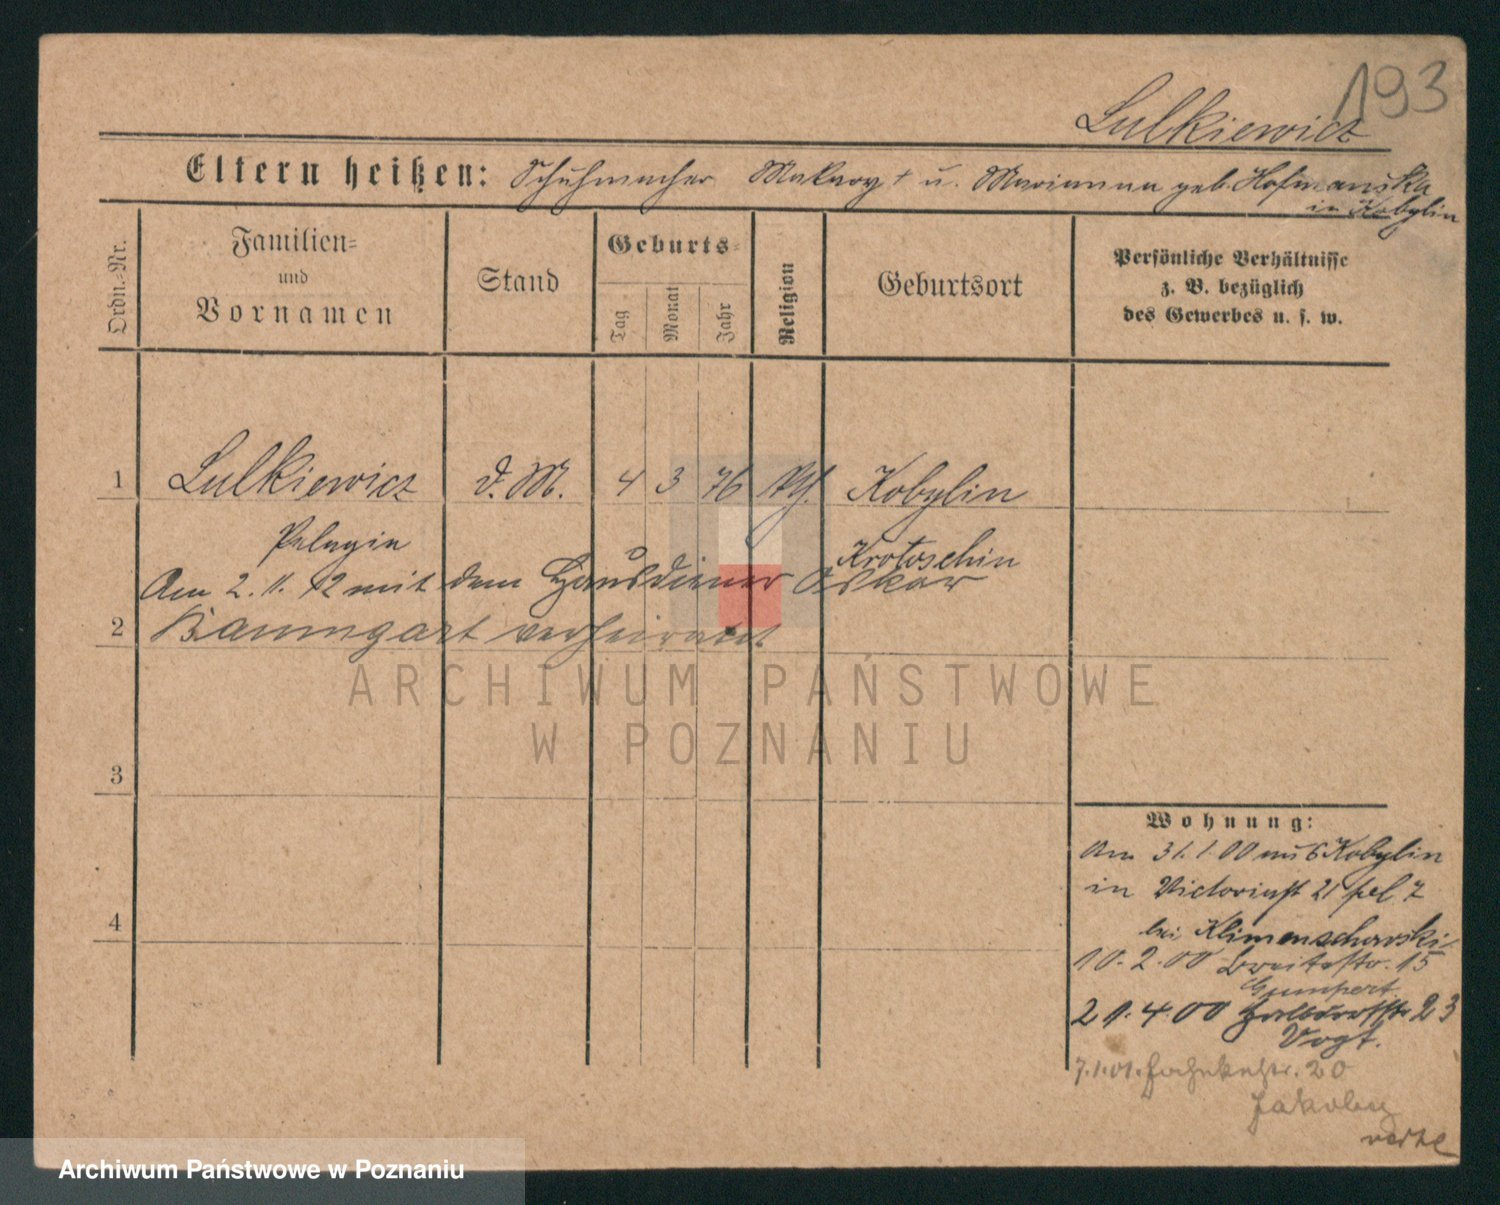 193
Lulkiewicz
Eltern heißen: Schuhmacher Makary † u. Marianna geb. Hofmanska
in Kobylin
Ordn.-Nr.
Familien-
und
Vornamen
Stand
Geburts-
Tag
Monat
Jahr
Religion
Geburtsort
Persönliche Verhältnisse
z. B. bezüglich
des Gewerbes u. s. w.
1 Lulkiewicz d. M. 4 3 76 kth. Kobylin
Pelagia Krotoschin
Am 2. 11. 12 mit dem Hausdiener Oskar
2 Baumgart verheiratet
ARCHIWUM PAŃSTWOWE
W POZNANIU
3
4
Wohnung:
Am 31.1.00 aus Kobylin
in Victoriastr 21
bei Klimenschewski
10.2.00 Breitestr. 15
Gumpert
21.4.00 Halbdorfstr 23
Vogt.
7.1.01. 20
Jakoby
verte
Archiwum Państwowe w Poznaniu